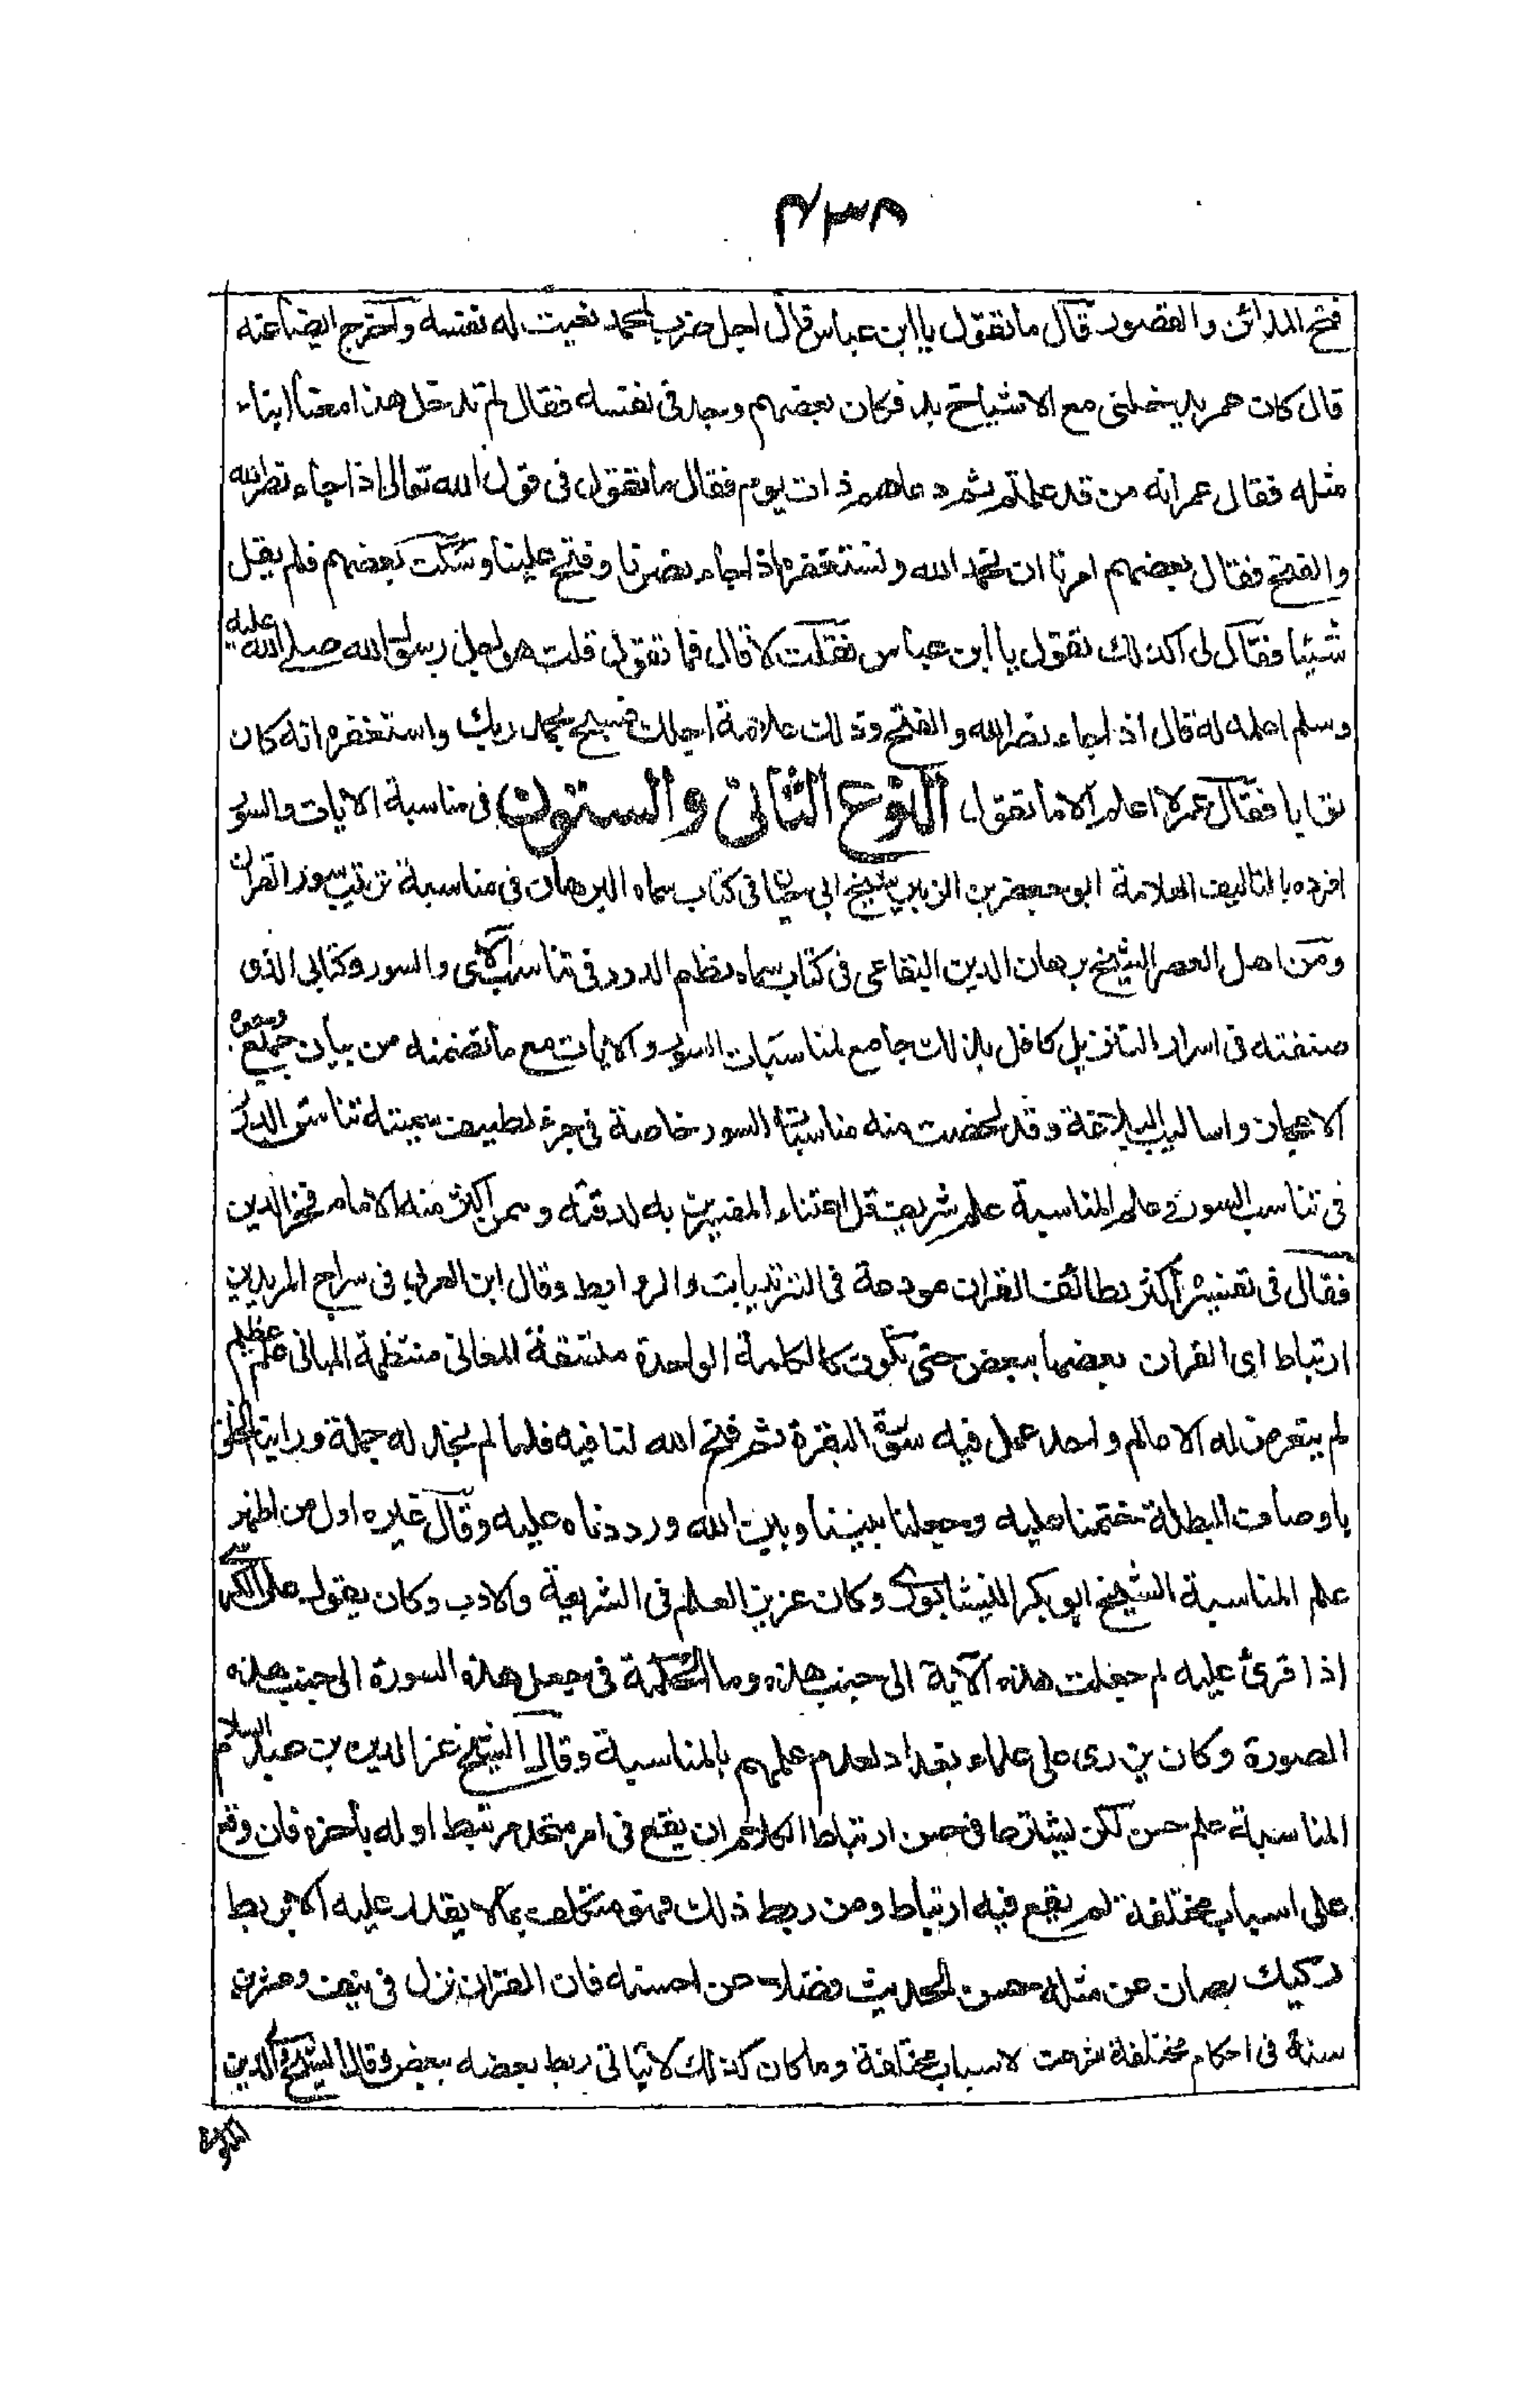 ۴۳۸
فتح المدائن والقصور قال ما تقول يا ابن عباس قال اجل ضرب لمحمد نعيت له نفسه واخرج ايضا عنه
قال كان عمر يدخلني مع الاشياخ بدر فكان بعضهم وجد في نفسه فقال لم تدخل هذا معنا ابناء
مثله فقال عمر انه من قد علمتم ثم دعاهم ذات يوم فقال ما تقول في قول الله تعالى اذا جاء نصر الله
والفتح فقال بعضهم امرنا ان نحمد الله ونستغفره اذا جاء نصرنا وفتح علينا وسكت بعضهم فلم يقل
شيئا فقال لي اكذلك تقول يا ابن عباس فقلت لا قال فما تقول قلت هو اجل رسول الله صلى الله عليه
وسلم اعلمه له قال اذا جاء نصر الله والفتح وذلك علامة اجلك فسبح بحمد ربك واستغفره انه كان
توابا فقال عمر لا اعلم الا ما تقول النوع الثاني والستون في مناسبة الايات والسور
افرده بالتاليف العلامة ابو جعفر بن الزبير شيخ ابي حيان في كتاب سماه البرهان في مناسبة ترتيب سور القران
ومن اهل العصر الشيخ برهان الدين البقاعي في كتاب سماه نظم الدرر في تناسب الآي والسور وكتابي الذي
صنفته في اسرار التنزيل كافل بذلك جامع لمناسبات السور والايات مع ما تضمنه من بيان جميع وجوه
الاعجاز واساليب البلاغة وقد لخصت منه مناسبات السور خاصة في جزء لطيف سميته تناسق الدرر
في تناسب السور وعلم المناسبة علم شريف قل اعتناء المفسرين به لدقته وممن اكثر منه الامام فخر الدين
فقال في تفسيره اكثر لطائف القران مودعة في الترتيبات والروابط وقال ابن العربي في سراج المريدين
ارتباط اي القران بعضها ببعض حتى تكون كالكلمة الواحدة متسقة المعاني منتظمة المباني علم عظيم
لم يتعرض له الا عالم واحد عمل فيه سورة البقرة ثم فتح الله لنا فيه فلما لم نجد له حملة وراينا الخلق
باوصاف البطلة ختمنا عليه وجعلنا بيننا وبين الله ورددناه عليه وقال غيره اول من اظهر
علم المناسبة الشيخ ابو بكر النيشابوري وكان غزير العلم في الشريعة والادب وكان يقول على الكرسي
اذا قرئ عليه لم جعلت هذه الآية الى جنب هذه وما الحكمة في جعل هذه السورة الى جنب هذه
الصورة وكان يزري على علماء بغداد لعدم علمهم بالمناسبة وقال الشيخ عز الدين بن عبد السلام
المناسبة علم حسن لكن يشترط في حسن ارتباط الكلام ان يقع في امر متحد مرتبط اوله باخره فان وقع
على اسباب مختلفة لم يقع فيه ارتباط ومن ربط ذلك فهو متكلف بما لا يقدر عليه الا بربط
ركيك يصان عن مثله حسن الحديث فضلا عن احسنه فان القران نزل في نيف وعشرين
سنة في احكام مختلفة شرعت لاسباب مختلفة وما كان كذلك لا يتاتى ربط بعضه ببعض وقال الشيخ ولي الدين